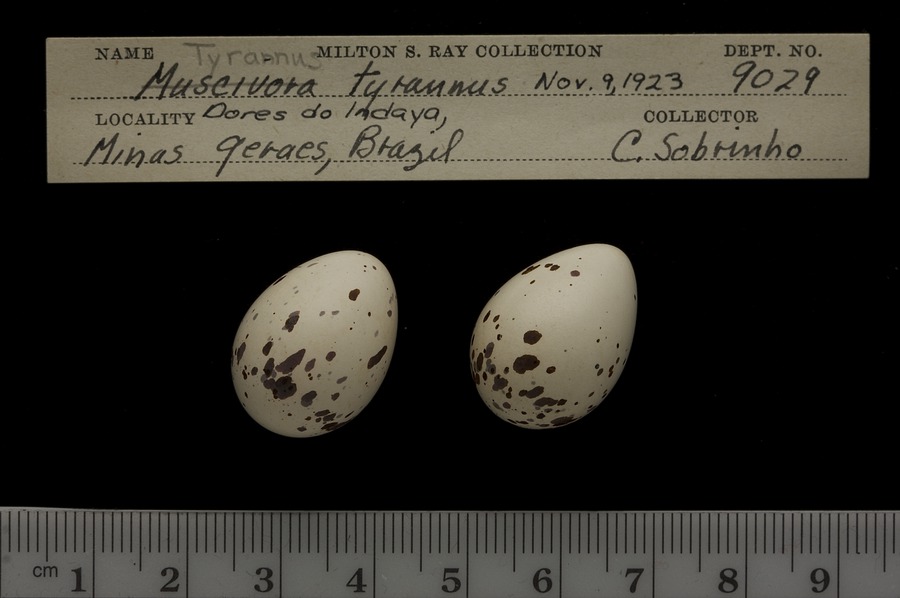 NAME Tyrannus MILTON S. RAY COLLECTION DEPT. NO.
Muscivora tyrannus Nov. 9, 1923 9029
LOCALITY Dores do Indaya, COLLECTOR
Minas Geraes, Brazil C. Sobrinho
cm 1 2 3 4 5 6 7 8 9